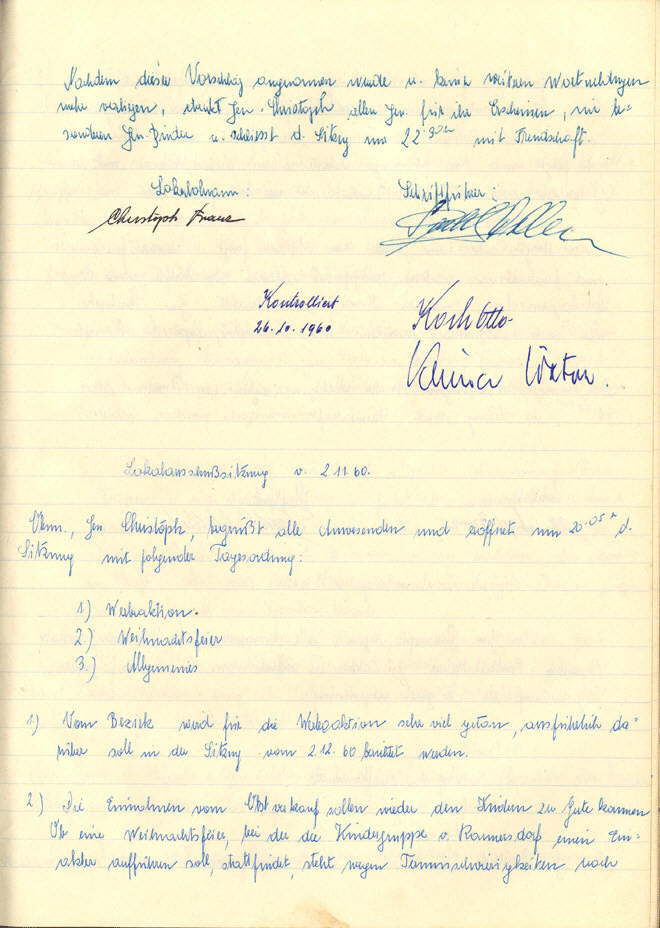 Nachdem dieser Vorschlag angenommen wurde u. keine weiteren Wortmeldungen
mehr vorliegen, dankt Gen. Christoph allen Gen. für ihr Erscheinen, im be-
sonderen Gen. Binder u. schliesst d. Sitzung um 22 30h mit Freundschaft.
Lokalobmann: Schriftführer:
Christoph Franz
Kontrolliert
26.10.1960
Koch Otto
Lokalausschußsitzung v. 2.11.60.
Obm., Gen Christoph, begrüßt alle Anwesenden und eröffnet um 20.05 h d.
Sitzung mit folgender Tagesordnung:
1) Werbeaktion.
2.) Weihnachtsfeier
3.) Allgemeines
1) Vom Bezirk wird für die Werbeaktion sehr viel getan, ausführlich da-
rüber soll in der Sitzung vom 2.12.60 berichtet werden.
2) Die Einnahmen vom Obstverkauf sollen wieder den Kindern zu Gute kommen
Ob eine Weihnachtsfeier, bei der die Kindergruppe v. Rannersdorf einen Ein-
akter aufführen soll, stattfindet, steht wegen Terminschwierigkeiten noch